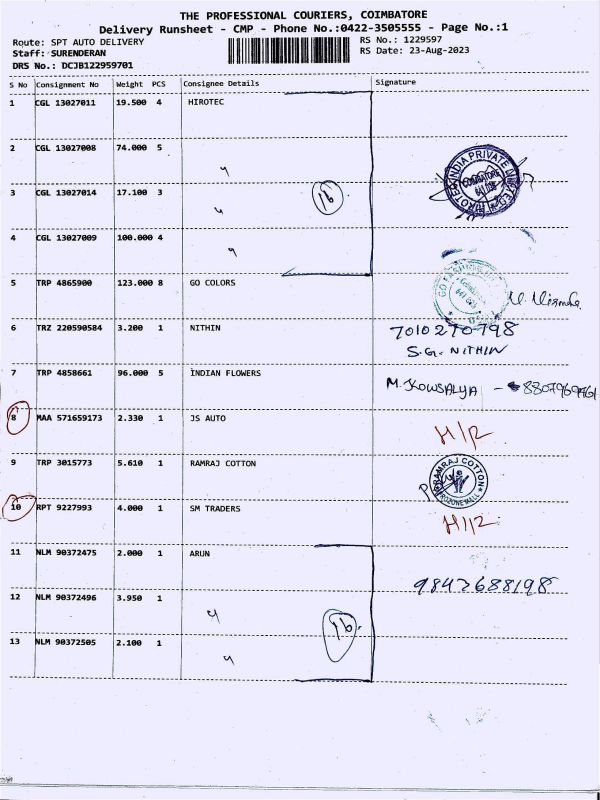 THE PROFESSIONAL COURIERS, COIMBATORE
Delivery Runsheet - CMP - Phone No.:0422-3505555 - Page No.:1
Route: SPT AUTO DELIVERY RS No.: 1229597
Staff: SURENDERAN RS Date: 23-Aug-2023
DRS No.: DCJB122959701
S No Consignment No Weight PCS Consignee Details Signature
1 CGL 13027011 19.500 4 HIROTEC
2 CGL 13027008 74.000 5 "
3 CGL 13027014 17.100 3 "
4 CGL 13027009 100.000 4 "
5 TRP 4865900 123.000 8 GO COLORS
6 TRZ 220590584 3.200 1 NITHIN 7010270798
S.G. NITHIN
7 TRP 4858661 96.000 5 INDIAN FLOWERS M. KOWSALYA -
8 MAA 571659173 2.330 1 JS AUTO H/R
9 TRP 3015773 5.610 1 RAMRAJ COTTON RAMRAJ COTTON
10 RPT 9227993 4.000 1 SM TRADERS H/R
11 NLM 90372475 2.000 1 ARUN 9842688198
12 NLM 90372496 3.950 1 "
13 NLM 90372505 2.100 1 "